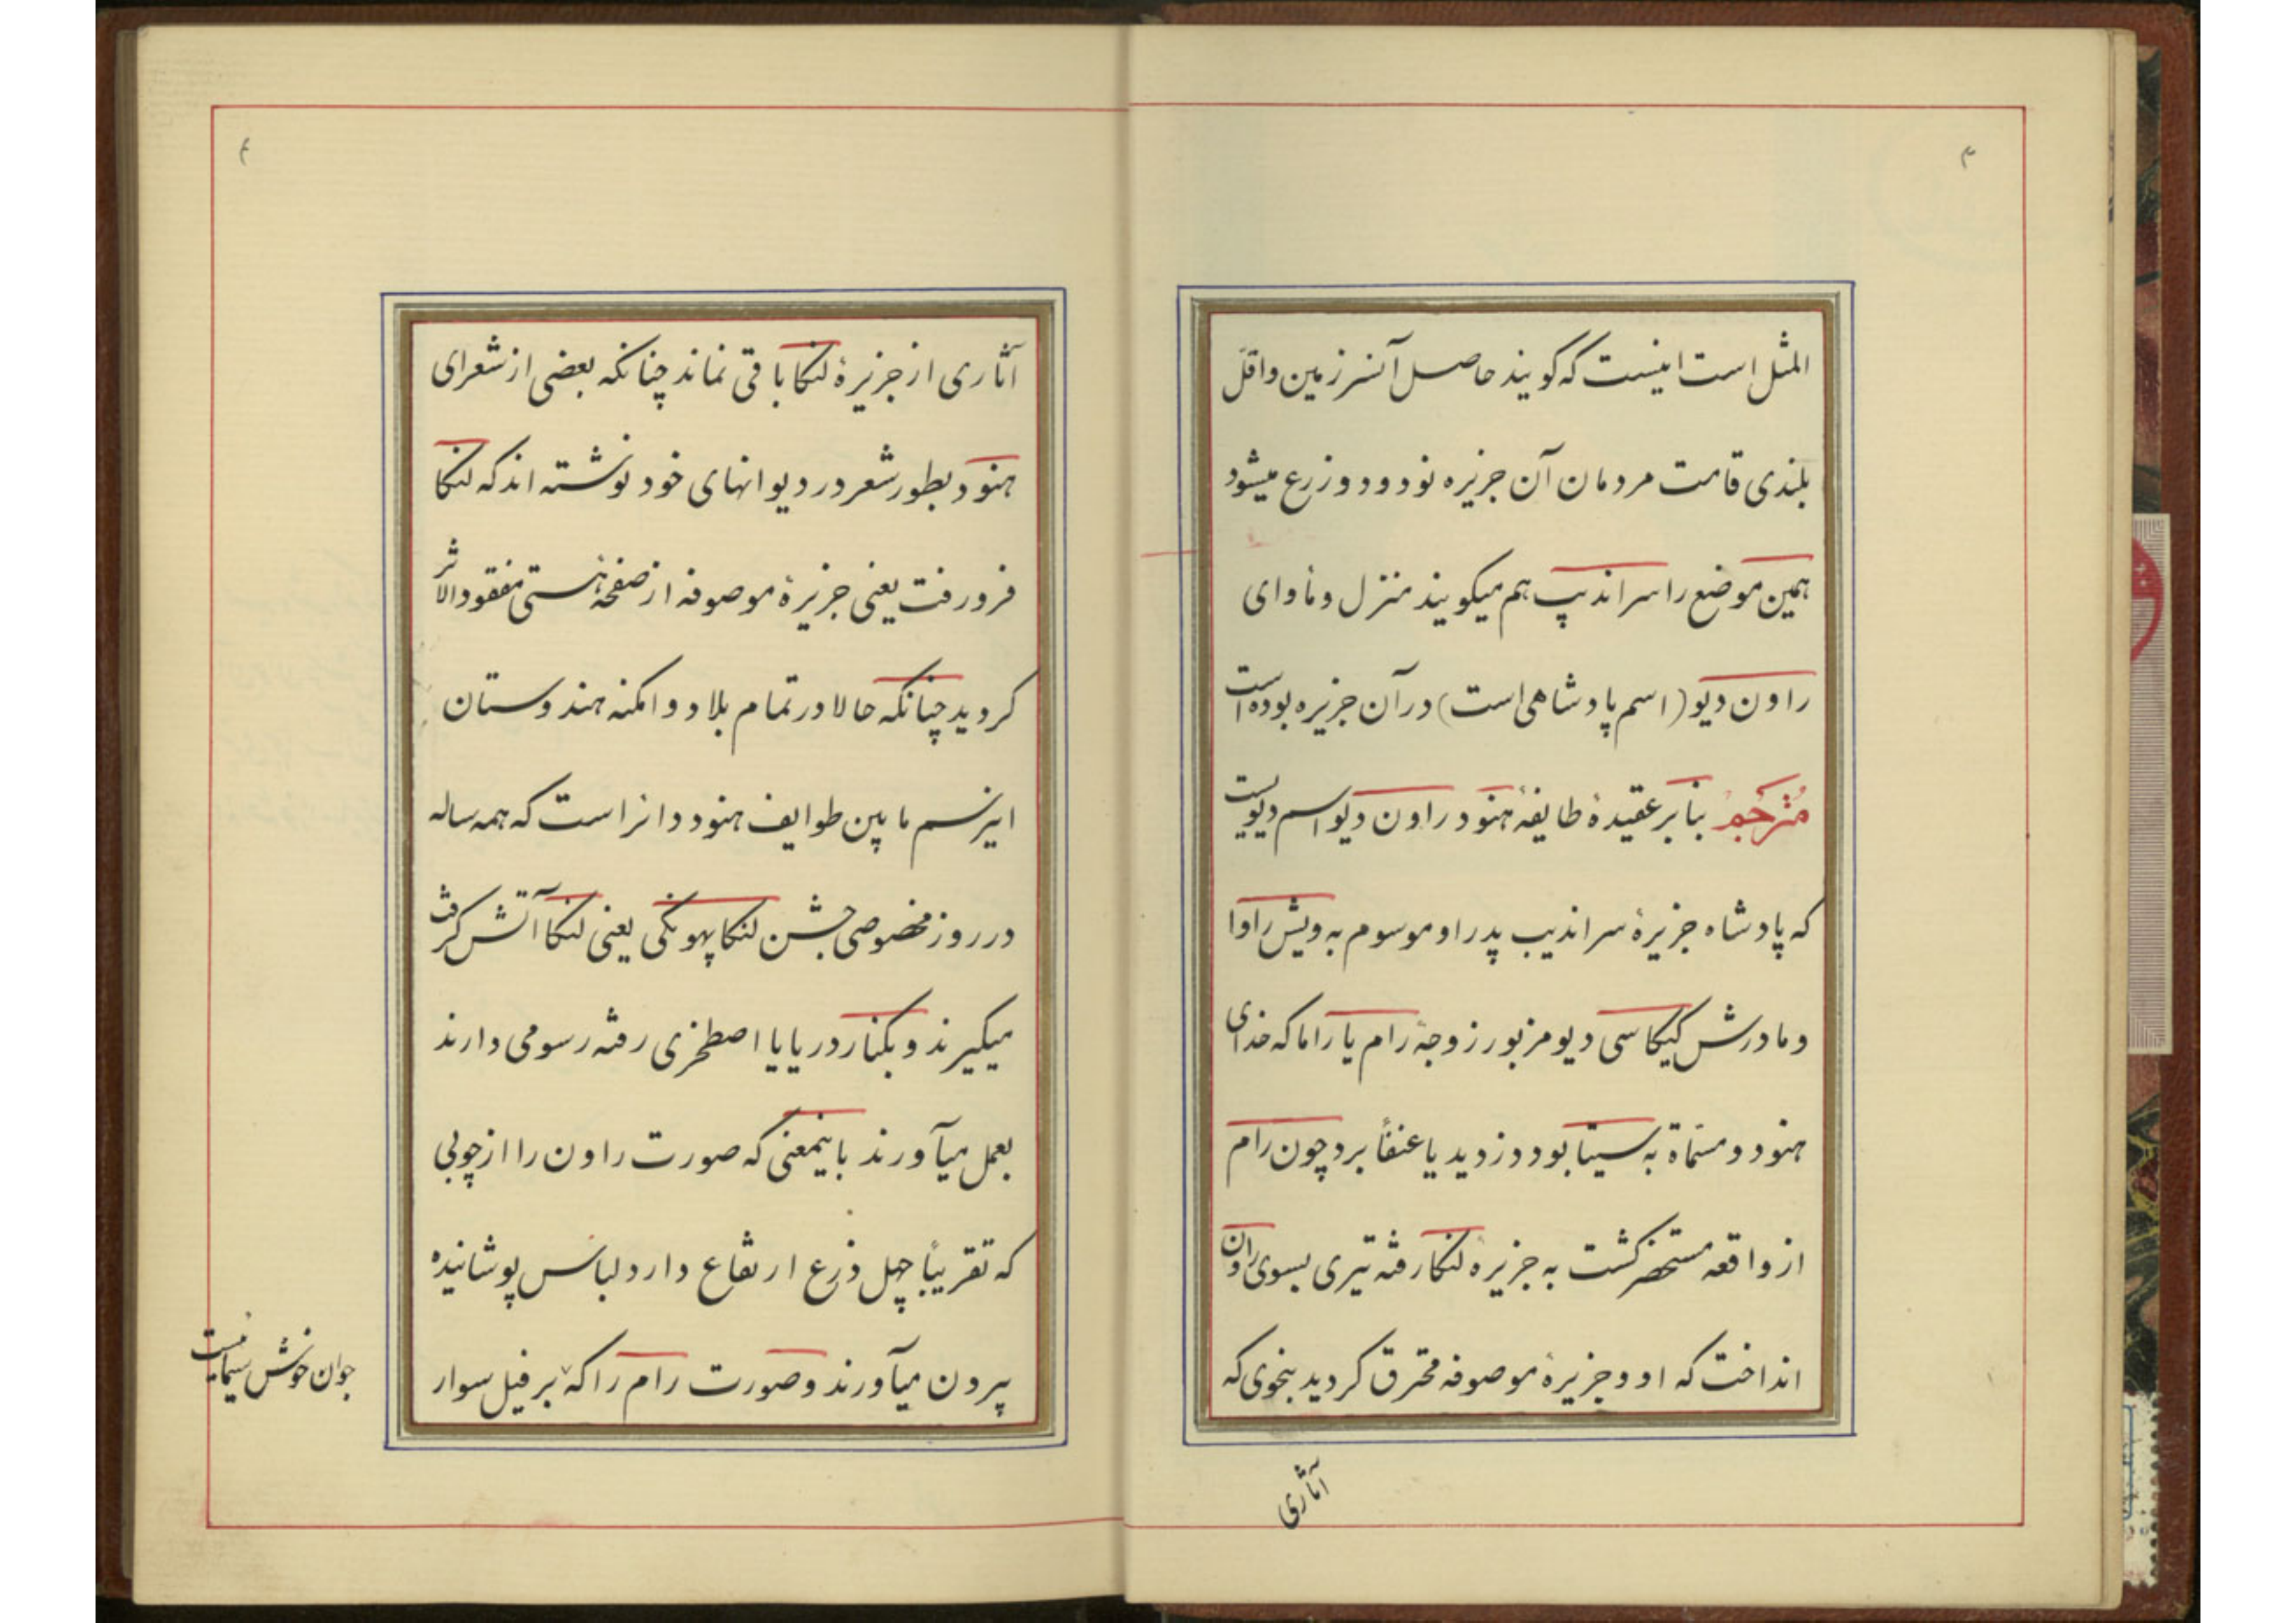 ۳
المثل است اینست که گویند حاصل آنسرزمین و اقلّ
بلندی قامت مردمان آن جزیره نود و دو زرع میشود
همین موضع را سراندیپ هم میگویند منزل و مأوای
راون دیو (اسم پادشاهی است) در آن جزیره بوده است
مُترجم بنا بر عقیدهٔ طایفهٔ هنود راون دیو اسم دیویست
که پادشاه جزیرهٔ سراندیب پدر او موسوم به ویش راوا
و مادرش کیکاسی دیو مزبور زوجهٔ رام یا راما که خدای
هنود و مسمّاة به سیتا بود دزدید یا عنفاً برد چون رام
از واقعه مستحضر گشت به جزیرهٔ لنکا رفته تیری بسوی راون
انداخت که او و جزیرهٔ موصوفه محترق گردید بنحوی که
آثاری
۴
آثاری از جزیرهٔ لنکا باقی نماند چنانکه بعضی از شعرای
هنود بطور شعر در دیوانهای خود نوشته اند که لنکا
فرو رفت یعنی جزیرهٔ موصوفه از صفحهٔ هستی مفقود الاثر
گردید چنانکه حالا در تمام بلاد و امکنه هندوستان
اینرسم ما بین طوایف هنود دائر است که همه ساله
در روز مخصوصی جشن لنکا پهونکی یعنی لنکا آتش گرفت
میگیرند و بکنار دریا یا اصطخری رفته رسومی دارند
بعمل میآورند باینمعنی که صورت راون را از چوبی
که تقریباً چهل ذرع ارتفاع دارد لباس پوشانیده
بیرون میآورند و صورت رام را که بر فیل سوار
جوان خوش سیمائیست